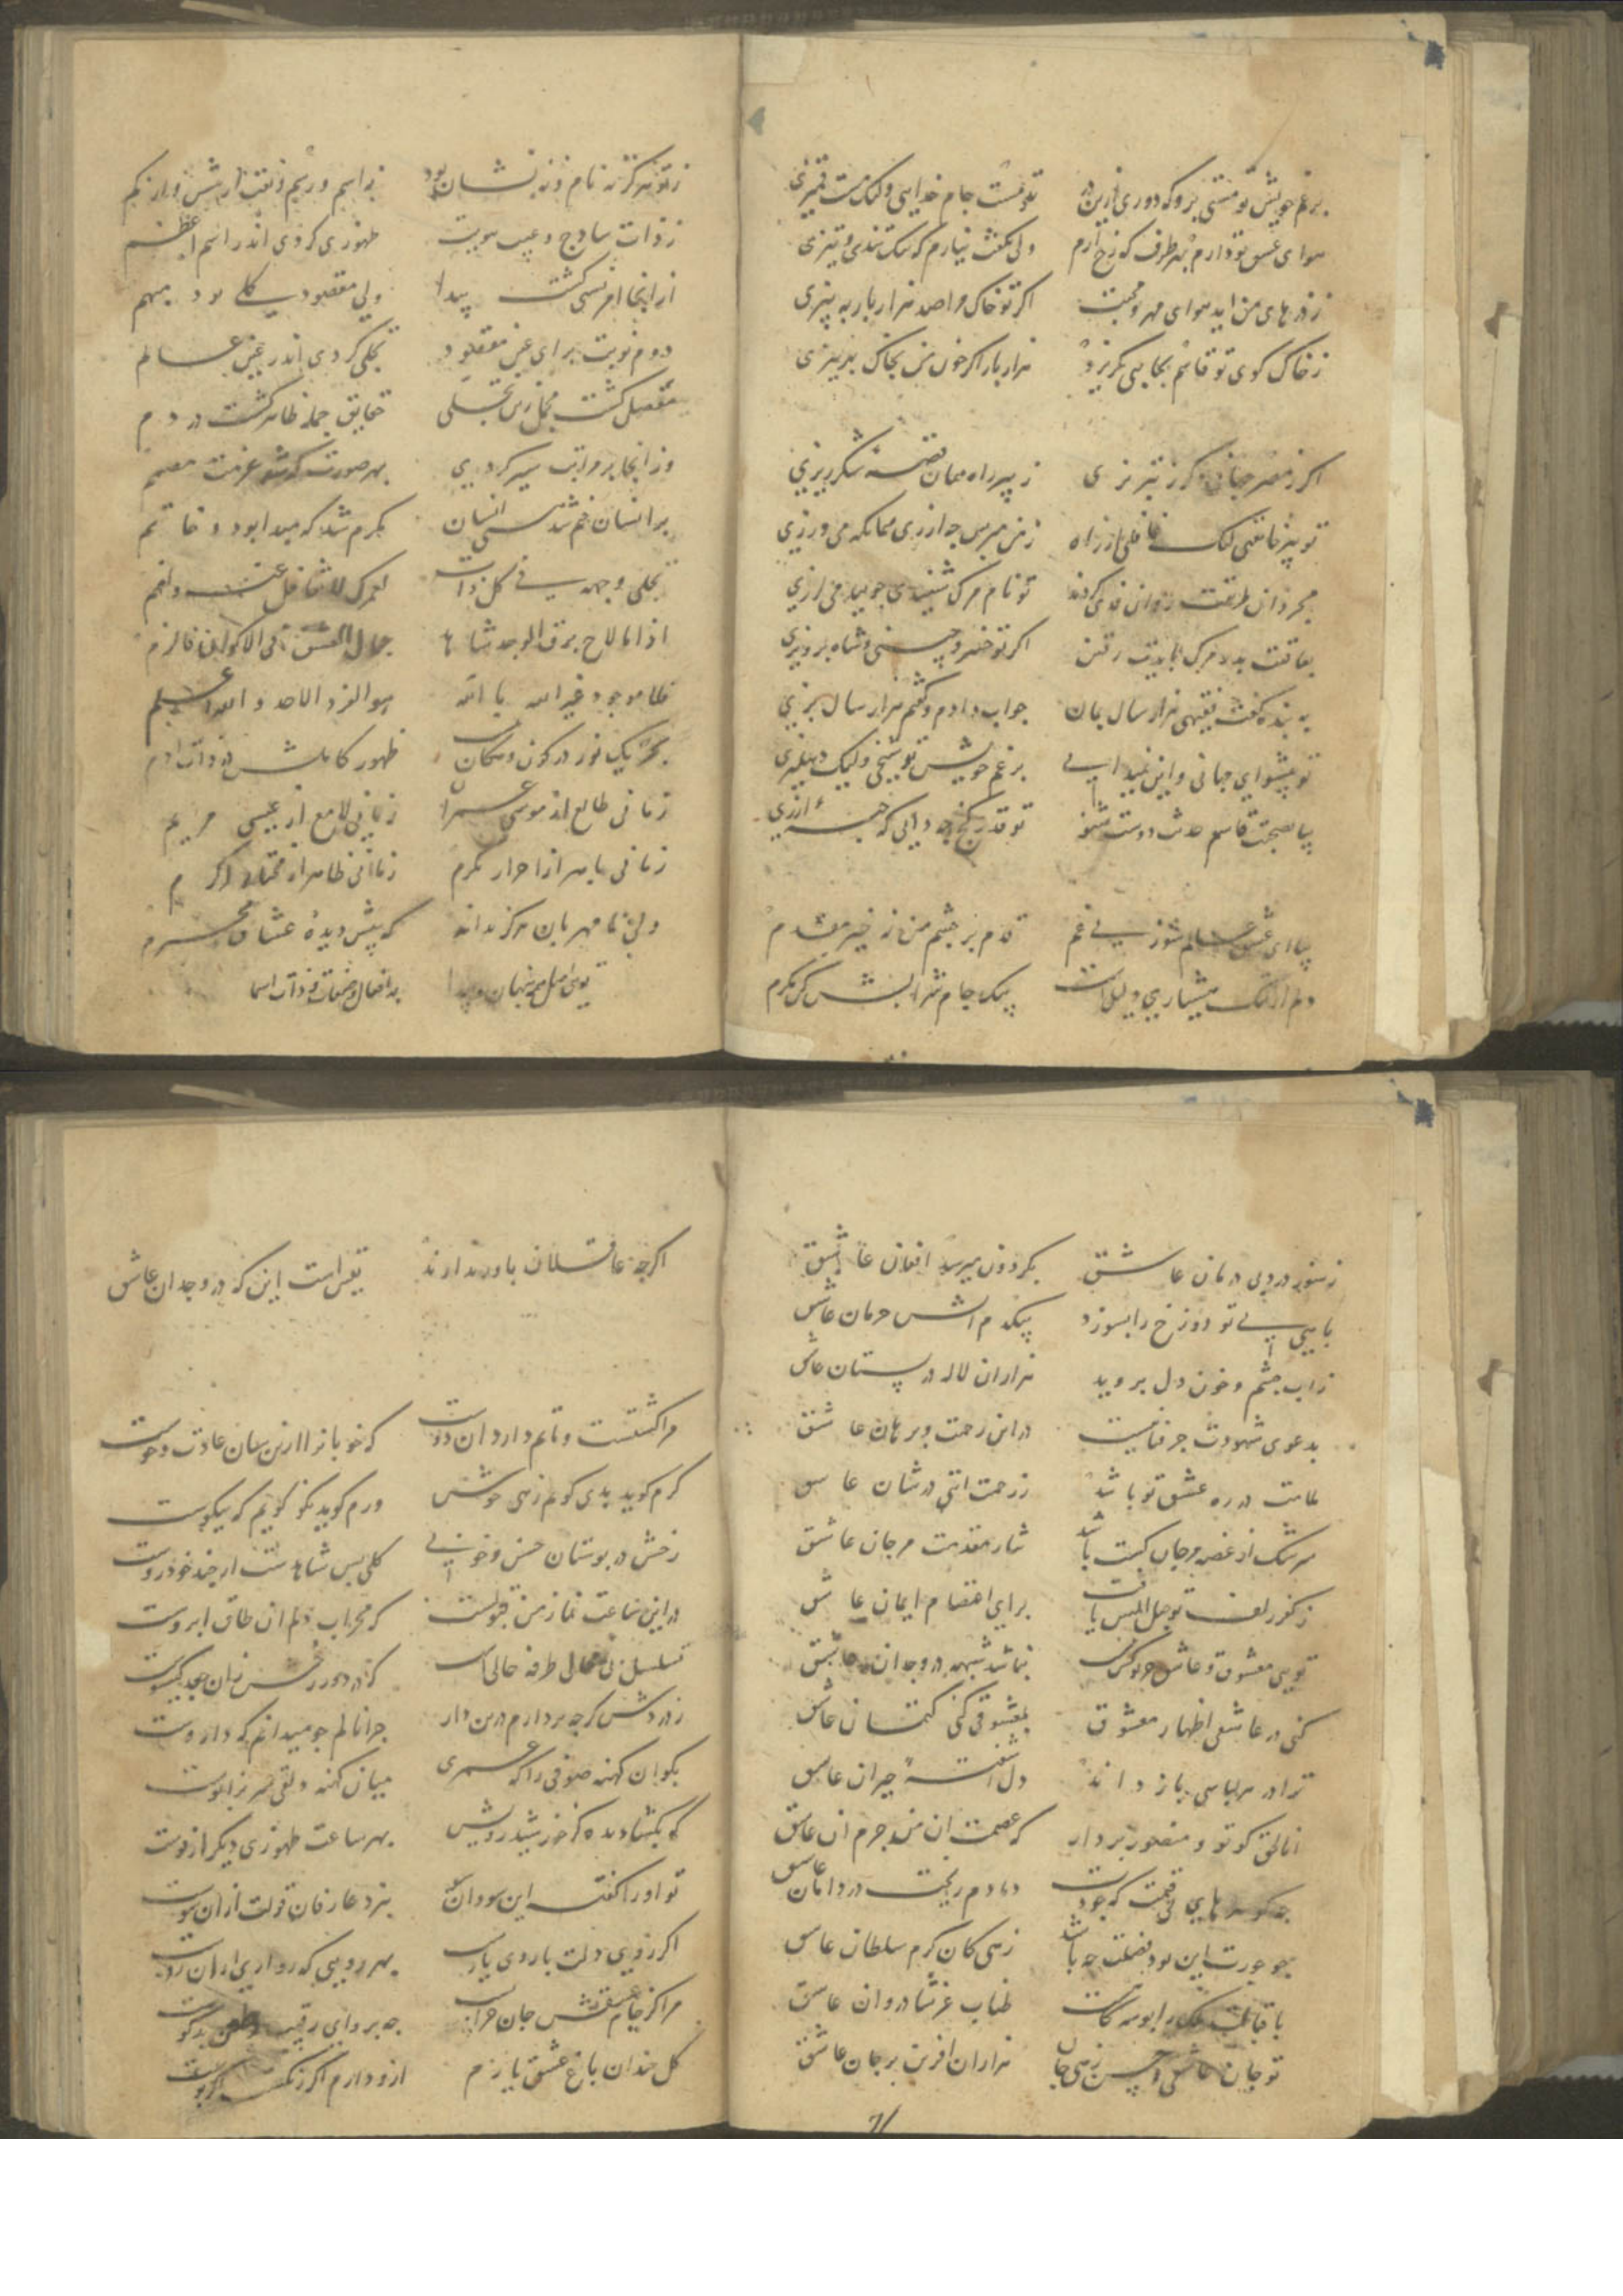 برغم خویش تو مستی برو که دوری ازین در
تو مست جام خدایی ولیک مست قمیزی
هوای عشق تو دارم بهر طرف که رخ آرم
ولی نکفت نیارم که بس تندی و تیزی
ز ذرهای من آید هوای مهر و محبت
اکر تو خاک مرا صد هزار بار به بیزی
ز خاک کوی تو قاسم بجایی نکریزد
هزار بار اکر خون من بخاک بریزی
اکر ز مصر جهانی و کر ز تبریزی
ز پیر راه همان شکرریزی
تو پیر خانقهی لیک غافلی از راه
ز من مپرس چه ارزی همانکه می ورزی
مجردان طریقت روان فدی کردند
تو نام مرک شنیدی چو بید می لرزی
بعاقبت بدر مرک بایدت رفتن
اکر تو خسرو چینی و شاه پرویزی
به بنده کفت فقیهی هزار سال بمان
جواب دادم و کفتم هزار سال بزی
تو پیشوای جهانی و این نمیدانی
برغم خویش تو شیخی ولیک دهلیزی
بیا بصحبت قاسم حدیث دوست شنو
تو قدر کنج چه دانی که حبه ارزی
بیا ای عشق عالم سوز بی غم
قدم بر چشم من نه خیر مقدم
دلم از ننک هشیاری ملولست
بیک جام شرابش کن مکرم
ز تو نه نام و نه نشان بود
ز اسم و رسم و نعت
ز ذات ساذج و غیب هویت
ظهوری کردی اندر اسم اعظم
از اینجا کشت پیدا
ولی مقصود کلی بود مبهم
دوم نوبت برای عین مقصود
تجلی کردی اندر عین عالم
مفصل کشت مجمل زین تجلی
حقایق جمله ظاهر کشت در دم
وز اینجا بر مراتب سیر کردی
بهر صورت که شد عزمت مصمم
بر انسان ختم شد انسان
مکرم شد که مبدا بود و خاتم
تجلی وجهه فی کل ذات
اذا ما لاح برق الوجد شاها
جمال الحسن فی الاکوان فالزم
فلا موجود غیر الله بالله
هو الفرد الاحد والله اعلم
بجز یک نور در کون و مکان نیست
ظهور کاملش در ذات آدم
زمانی طالع از موسی عمران
زمانی لامع از عیسی مریم
زمانی باهر از احرار مکرم
زمانی ظاهر از مختار اکرم
ولی نامهربان هرکز نداند
که پیش دیده عشاق محرم
تویی اصل همه پنهان و پیدا
به افعال و صفات و ذات و اسما
ز سوز درد بی درمان عاشق
بکردون میرسد افغان عاشق
بآهی بی تو دوزخ را بسوزد
بیکدم آتش حرمان عاشق
ز آب چشم و خون دل بروید
هزاران لاله در بستان عاشق
بدعوی شهودت جز فنا نیست
در این رحمت و برهان عاشق
ملامت در ره عشق تو باشد
ز رحمت آیتی در شان عاشق
سرشک از غصه مرجان کشت باشد
نثار مقدمت مرجان عاشق
ز کفر زلف تو حبل المتین یافت
برای اعتصام ایمان عاشق
تویی معشوق و عاشق جز تو کس نیست
نباشد شبهه در وجدان عاشق
کنی در عاشقی اظهار معشوق
بمعشوقی کنی کتمان عاشق
ترا در هر لباسی باز داند
دل آشفته حیران عاشق
انا الحق کو تو و منصور بر دار
که عصمت آن من جرم آن عاشق
چه کوهرهای بی قیمت که جودت
دمادم ریخت در دامان عاشق
چو جورت این بود فضلت چه باشد
زهی کان کرم سلطان عاشق
طناب عرش شادروان عاشق
تو جان عاشقی و حسن زهی جان
هزاران آفرین بر جان عاشق
اکرچه عاقلان باور ندارند
یقین است این که در وجدان عاشق
مرا کشتست و تا هم دارد آن دوست
که خوبانرا ازین سان عادت و خوست
کرم کوید بدی کویم زهی خوش
ورم کوید نکو کویم که نیکوست
رخش در بوستان حسن و خوبی
کلی بس شاهدست ارچند خودروست
در این ساعت نماز من قبولست
که محراب دلم آن طاق ابروست
تسلسل نی محال طرفه حالیست
که در دور رخش زان جعد کیسوست
ز دردش کرچه بردارم درین دار
چرا نالم چو میدانم که داروست
بکو آن کهنه صوفی را که عمری
میان کهنه دلقی سر بزانوست
که بکشا دیده کز خورشید رویش
بهر ساعت ظهوری دیکر از اوست
تو او را کفته این سو و آن سو
بنزد عارفان قولت از آن سوست
اکر روی دلت با روی یارست
بهر رویی که رو آری از آن روست
مرا کز جام عشقش جان خرابست
چه پروای رقیب و طعن بدکوست
کل خندان باغ عشق یارم
ازو دارم اکر رنکست اکر بوست